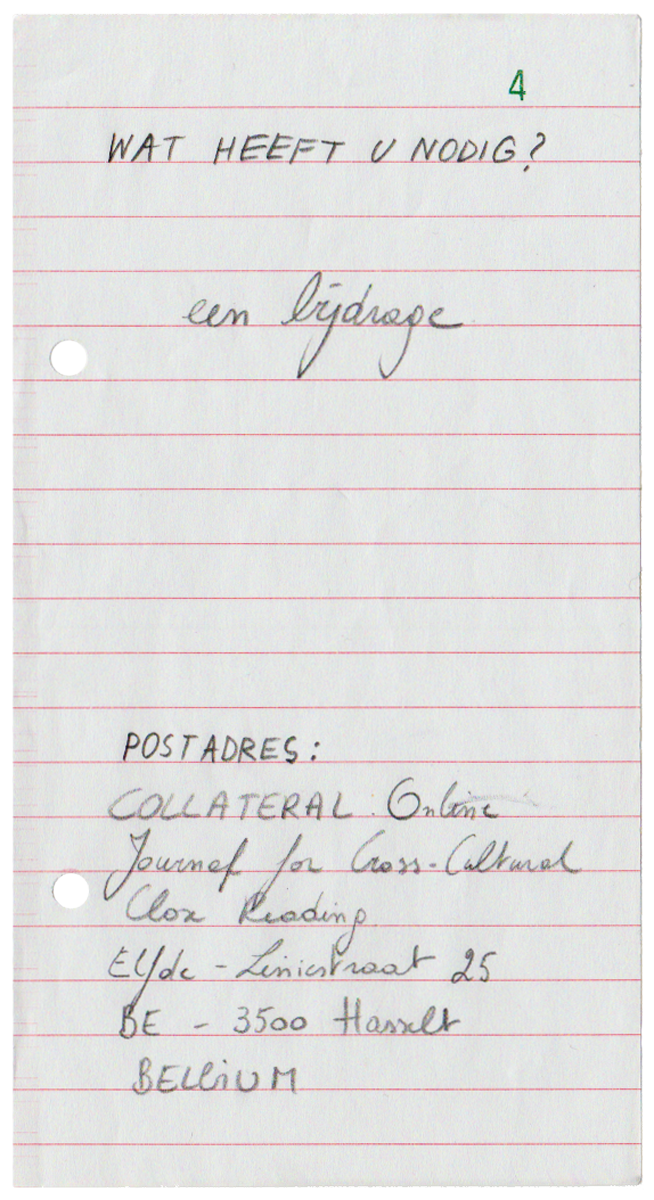 4
WAT HEEFT U NODIG?
een bijdrage
POSTADRES:
COLLATERAL. Online
Journal for Cross-Cultural
Close Reading
Elfde-Liniestraat 25
BE - 3500 Hasselt
BELGIUM